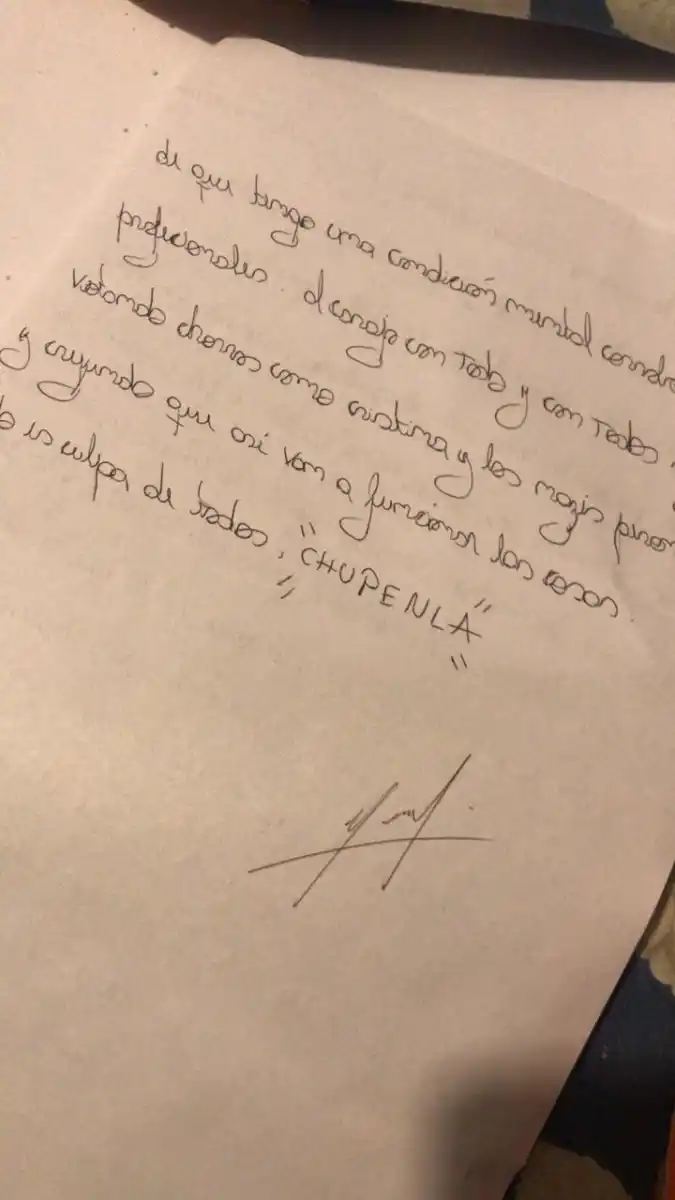 de que tengo una condición mental
profesionales. Al carajo con todo y con todos
votando chorros como cristina y los nazis
y creyendo que asi van a funcionar las cosas.
es culpa de todos, "CHUPENLA"